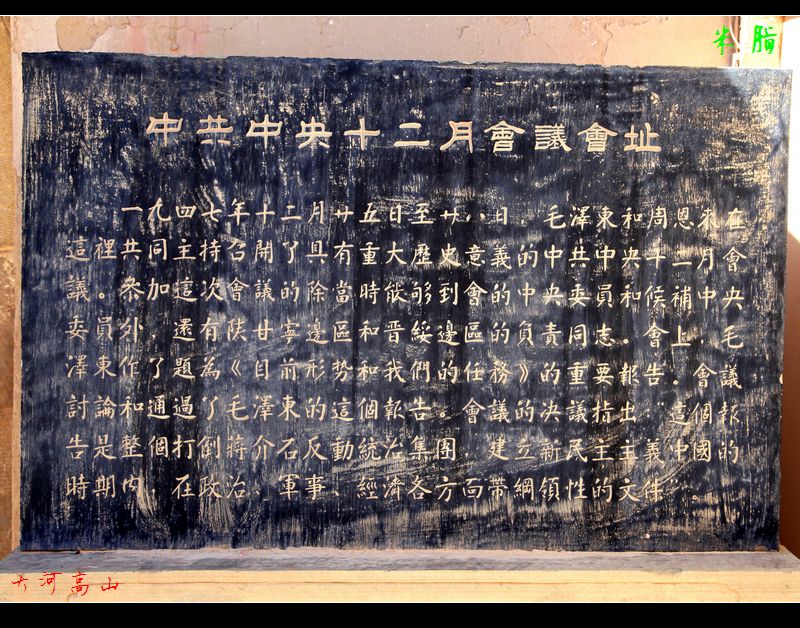 米脂
中共中央十二月會議會址
一九四七年十二月廿五日至廿八日,毛澤東和周恩來在
這裡共同主持召開了具有重大歷史意義的中共中央十二月會
議。參加這次會議的除當時能夠到會的中央委員和候補中央
委員外,還有陝甘寧邊區和晉綏邊區的負責同志。會上,毛
澤東作了題為《目前形勢和我們的任務》的重要報告。會議
討論和通過了毛澤東的這個報告。會議的決議指出:“這個報
告是整個打倒蔣介石反動統治集團,建立新民主主義中國的
時期內,在政治、軍事、經濟各方面帶綱領性的文件”。
大河高山